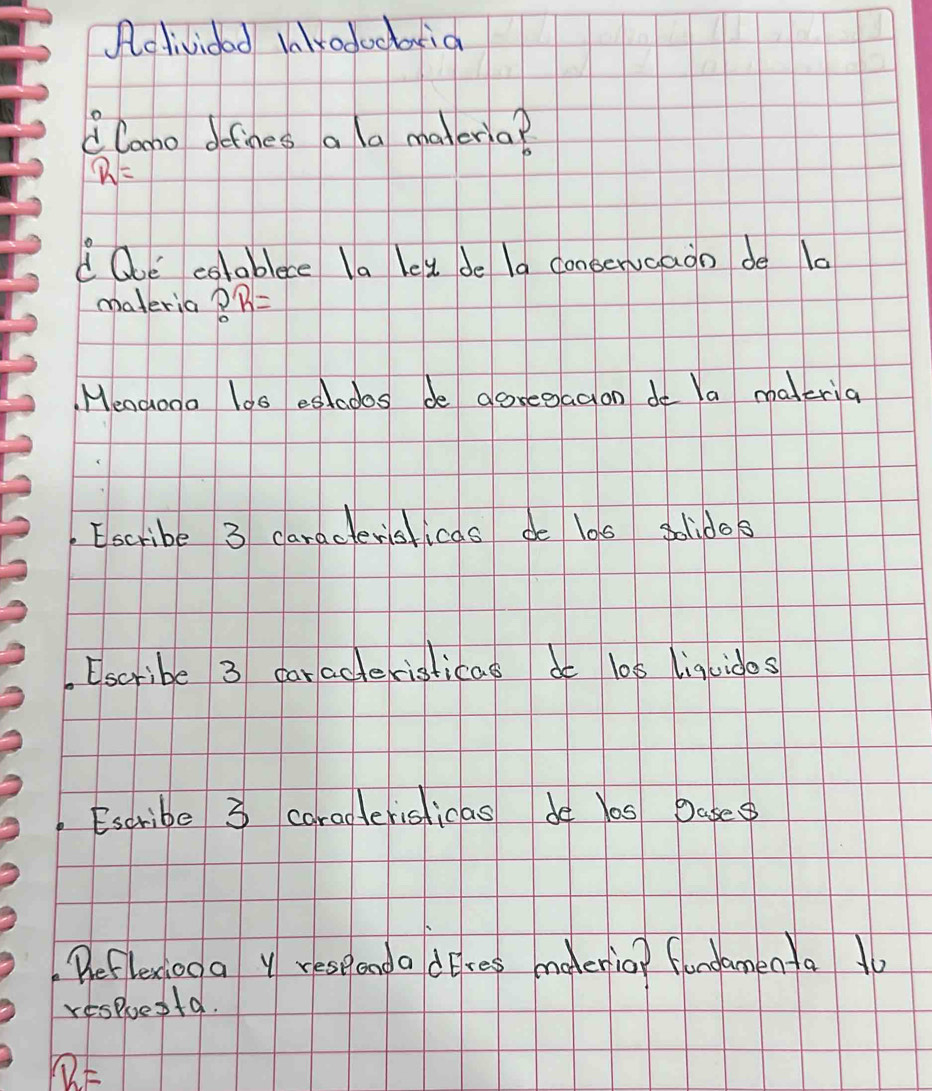 Actividad Introductoria
¿Como defines a la materia?
R=
¿Qué establece la ley de la conservación de la
materia? R=
.Menciona los estados de agregacion de la materia
.Escribe 3 caracteristicas de los solidos
.Escribe 3 caracteristicas de los liquidos
.Escribe 3 caracteristicas de los gases
.Reflexiona y responda ¿Eres materia? fundamenta tu
respuesta.
R=